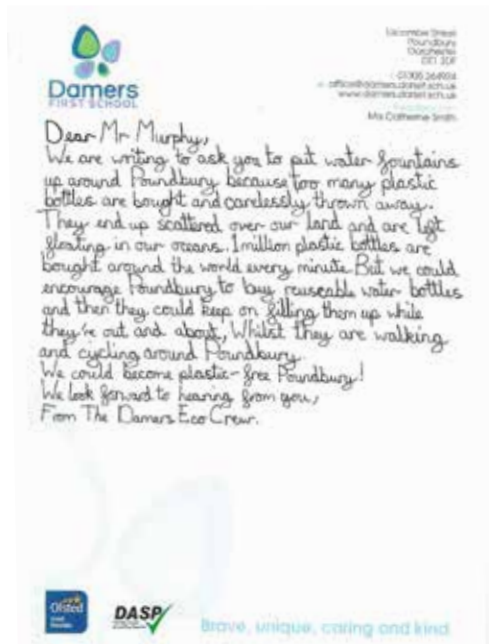 Damers
FIRST SCHOOL
Poundbury
Dorchester
Dear Mr Murphy,
We are writing to ask you to put water fountains
up around Poundbury because too many plastic
bottles are bought and carelessly thrown away.
They end up scattered over our land and are left
floating in our oceans. 1 million plastic bottles are
bought around the world every minute. But we could
encourage Poundbury to buy reuseable water bottles
and then they could keep on filling them up while
they're out and about, Whilst they are walking
and cycling around Poundbury.
We could become plastic-free Poundbury!
We look forward to hearing from you,
From The Damers Eco Crew.
Ofsted
DASP
Brave, unique, caring and kind